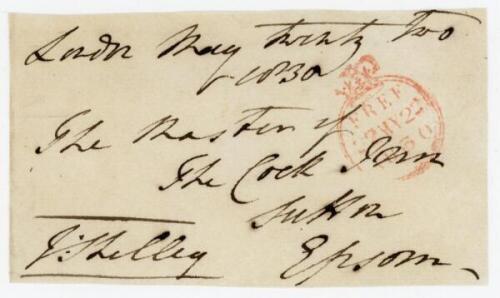 London May twenty two
1830
The Master of
The Cock Inn
Sutton
Epsom
J: Shelley
FREE
22 MY 22
1830